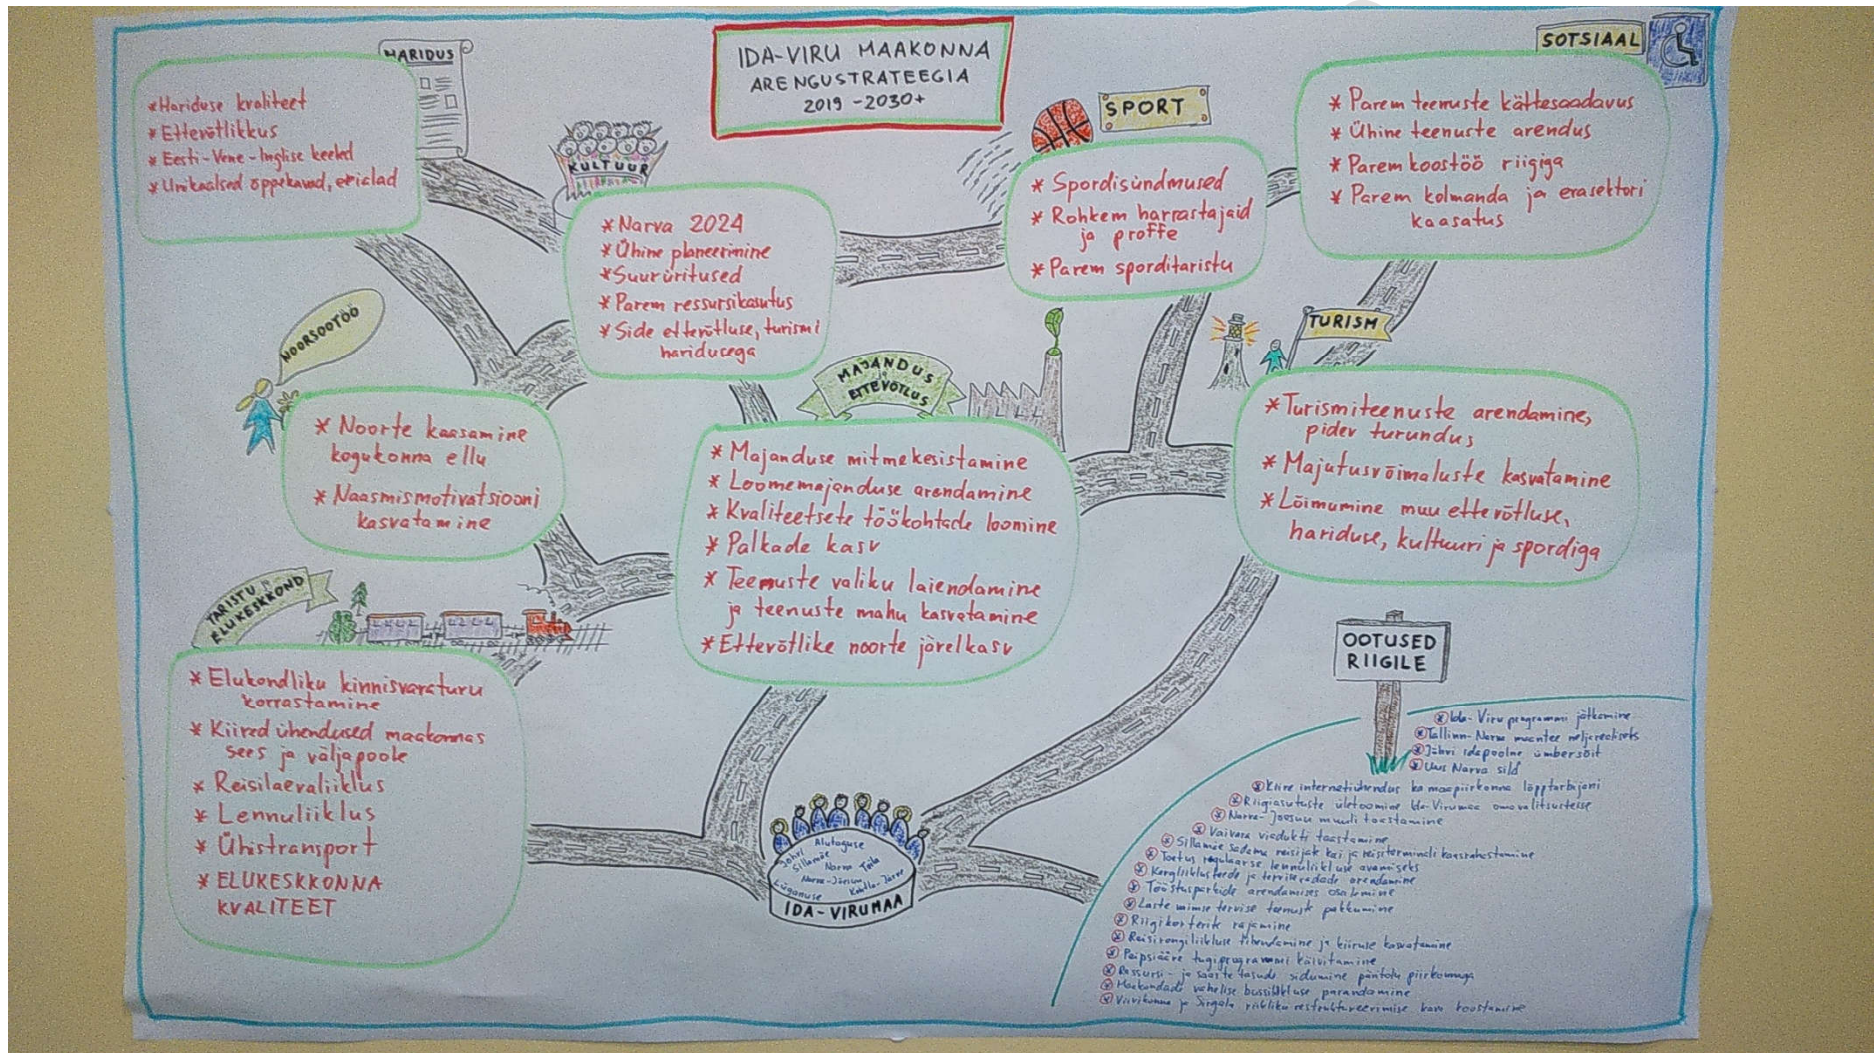 IDA-VIRU MAAKONNA
ARENGUSTRATEEGIA
2019-2030+
HARIDUS
* Hariduse kvaliteet
* Ettevõtlikkus
* Eesti-Vene-Inglise keeled
* Unikaalsed õppekavad, erialad
KULTUUR
* Narva 2024
* Ühine planeerimine
* Suurüritused
* Parem ressursikasutus
* Side ettevõtluse, turismi
haridusega
SPORT
* Spordisündmused
* Rohkem harrastajaid
ja proffe
* Parem sporditaristu
SOTSIAAL
* Parem teenuste kättesaadavus
* Ühine teenuste arendus
* Parem koostöö riigiga
* Parem kolmanda ja erasektori
kaasatus
NOORSOOTÖÖ
* Noorte kaasamine
kogukonna ellu
* Naasmismotivatsiooni
kasvatamine
MAJANDUS
ja
ETTEVÕTLUS
* Majanduse mitmekesistamine
* Loomemajanduse arendamine
* Kvaliteetsete töökohtade loomine
* Palkade kasv
* Teenuste valiku laiendamine
ja teenuste mahu kasvatamine
* Ettevõtlike noorte järelkasv
TURISM
* Turismiteenuste arendamine,
pidev turundus
* Majutusvõimaluste kasvatamine
* Lõimumine muu ettevõtluse,
hariduse, kultuuri ja spordiga
TARISTU JA
ELUKESKKOND
* Elukondliku kinnisvaraturu
korrastamine
* Kiired ühendused maakonnas
sees ja väljapoole
* Reisilaevaliiklus
* Lennuliiklus
* Ühistransport
* ELUKESKKONNA
KVALITEET
Alutaguse
Jõhvi
Sillamäe
Narva Toila
Narva-Jõesuu
Kohtla-Järve
Lüganuse
IDA-VIRUMAA
OOTUSED
RIIGILE
* Ida-Viru programmi jätkamine
* Tallinn-Narva maantee neljarealiseks
* Jõhvi idapoolne ümbersõit
* Uus Narva sild
* Kiire internetiühendus ka maapiirkonna lõpptarbijani
* Riigiasutusteületoomine Ida-Virumaa omavalitsustesse
* Narva-Jõesuu muuli taastamine
* Vaivara viadukti taastamine
* Sillamäe sadama reisijate kai ja reisiterminali kaasrahastamine
* Toetus regulaarse lennuliikluse avamiseks
* Kergliiklusteede ja terviseradade arendamine
* Tööstusparkide arendamises osalemine
* Laste vaimse tervise teenuste pakkumine
* Riigikorterite rajamine
* Reisirongiliikluse tihendamine ja kiiruse kasvatamine
* Peipsiääre tugiprogrammi käivitamine
* Ressursi- ja saaste tasude sidumine päritolu piirkonnaga
* Maakondade vahelise bussiliikluse parandamine
* Viivikonna ja Sirgala riikliku restruktureerimise kava koostamine